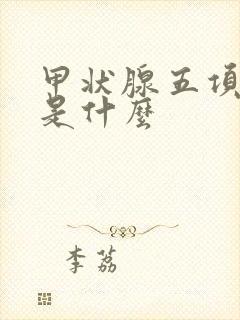 甲状腺五項
是什麼
李荔